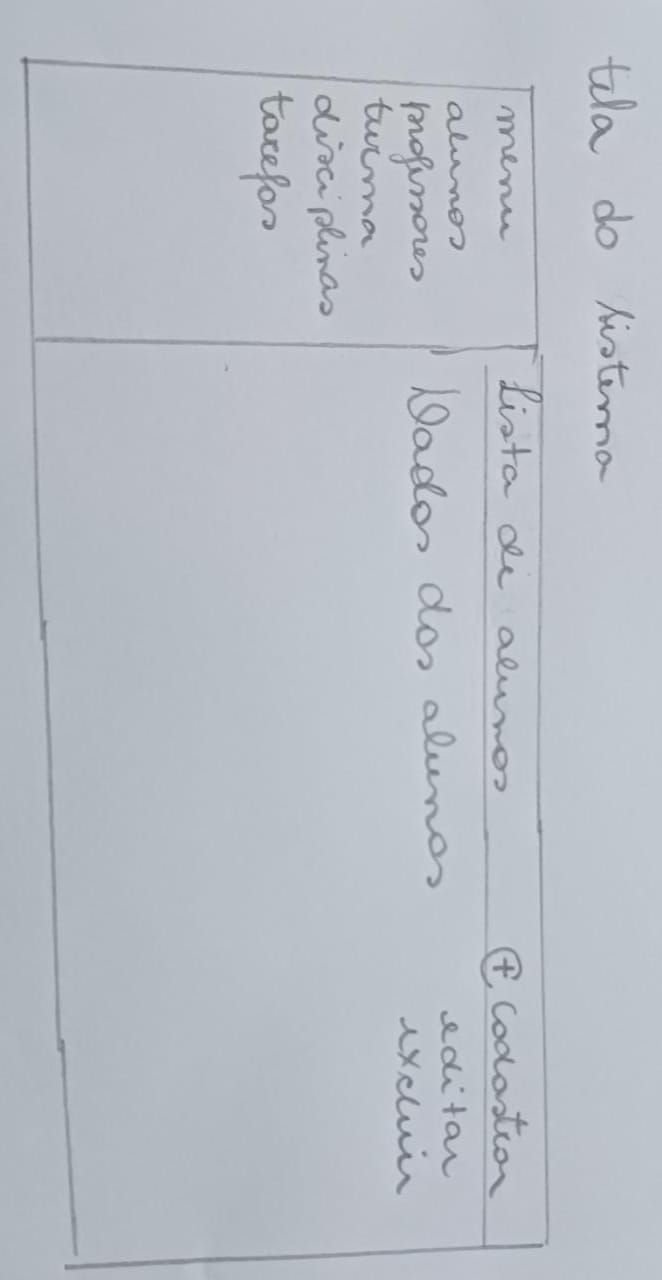 tela do sistema
menu
alunos
professores
turma
disciplinas
tarefas
Lista de alunos + Cadastrar
Dados dos alunos editar
excluir